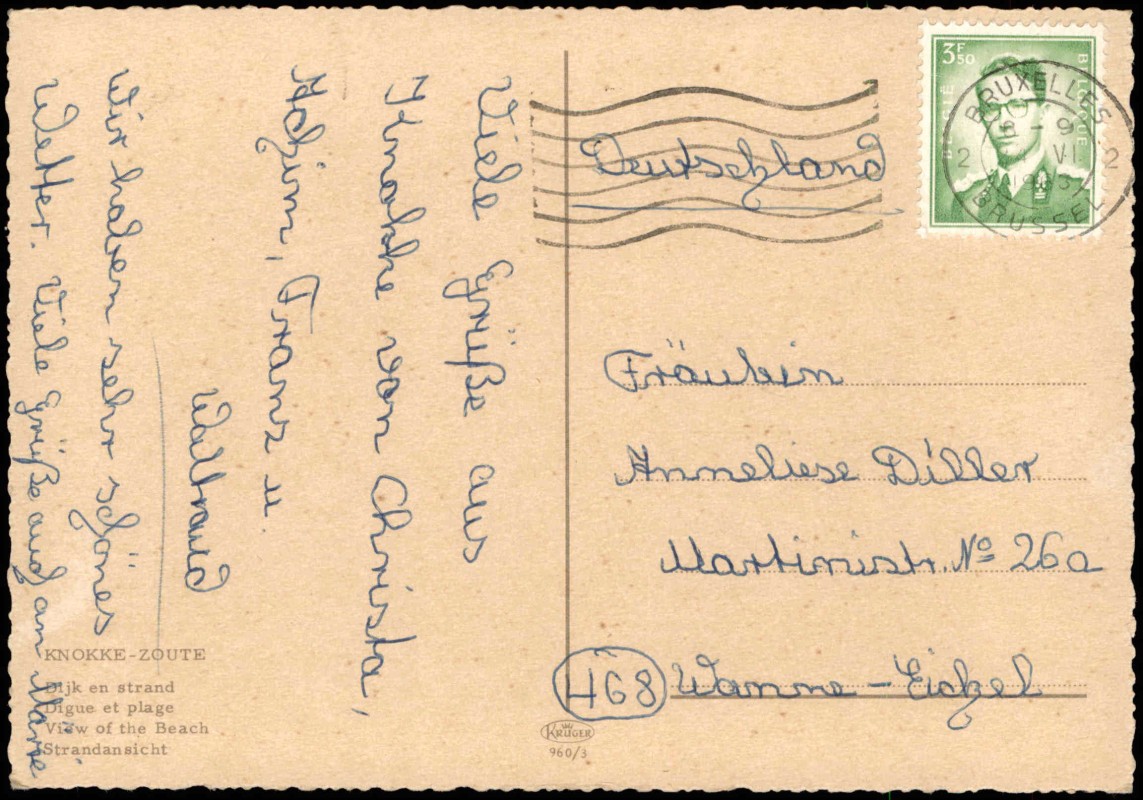 Viele Grüße aus
Knokke von Christa,
Achim, Franz u.
Waltraud
Wir haben sehr schönes
Wetter. Viele Grüße auch an Marie
3F50
BELGIË
BELGIQUE
BRUXELLES
2 - 9 2
VI
BRUSSEL
Deutschland
Fräulein
Anneliese Diller
Martinistr. No 26a
468 Wanne-Eickel
KNOKKE-ZOUTE
Dijk en strand
Digue et plage
View of the Beach
Strandansicht
KRÜGER
960/3